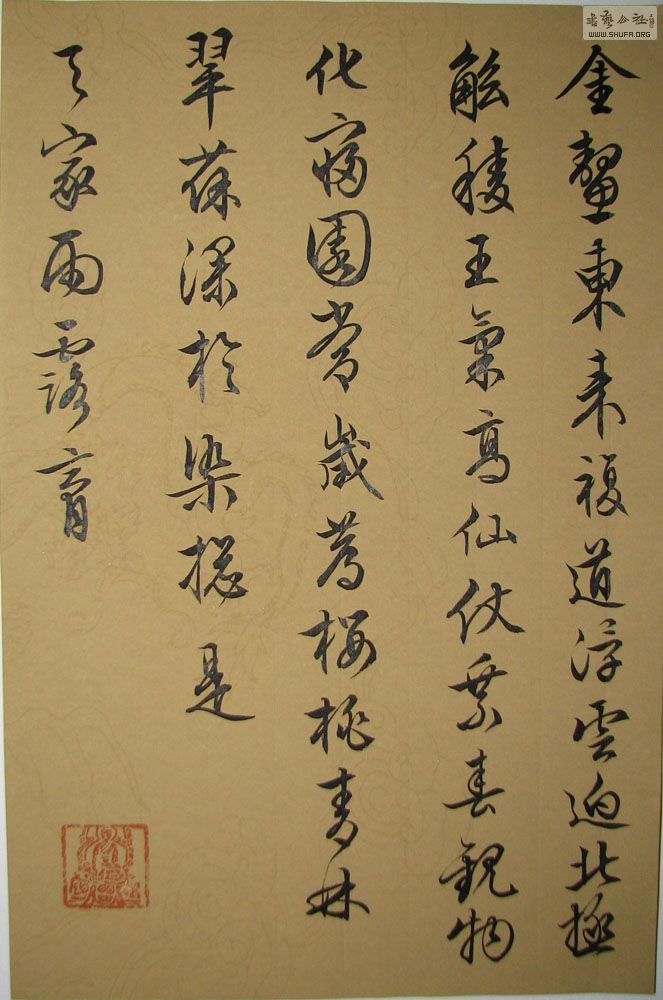 金鰲東来複道浮雲迥北極
觚稜王氣高仙仗乘春觀物
化寢園常歲薦櫻桃青林
翠葆深於染總是
天家雨露膏
書藝公社
WWW.SHUFA.ORG